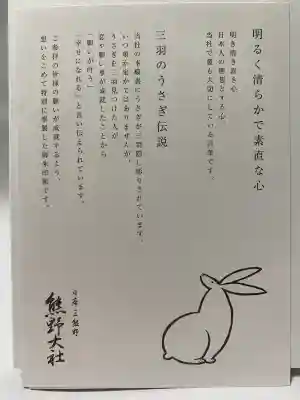 明るく清らかで素直な心
明き浄き直き心
日本人の理想とする心
当社で最も大切にしている言葉です。
三羽のうさぎ伝説
当社の本殿裏にうさぎが三羽隠し彫りされています。
いつの頃からかではありませんが、
うさぎを三羽見つけた人が
恋や願い事が成就したことから
「願いが叶う」
「幸せになれる」と言い伝えられています。
ご参拝の皆様の願いが成就するよう、
想いをこめて特別に奉製した御朱印帳です。
日本三熊野
熊野大社